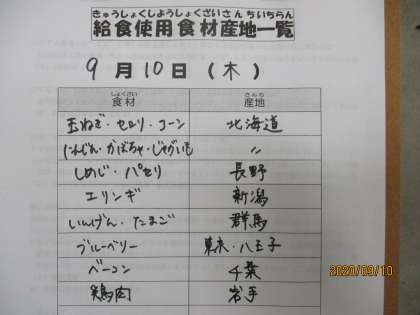 きゅうしょくしようしょくざいさんちいちらん
給食使用食材産地一覧
9月10日(木)
しょくざい さんち
食材 産地
玉ねぎ・セロリ・コーン 北海道
にんじん・かぼちゃ・じゃがいも 〃
しめじ・パセリ 長野
エリンギ 新潟
いんげん・たまご 群馬
ブルーベリー 東京・八王子
ベーコン 千葉
鶏肉 岩手
2020/09/10